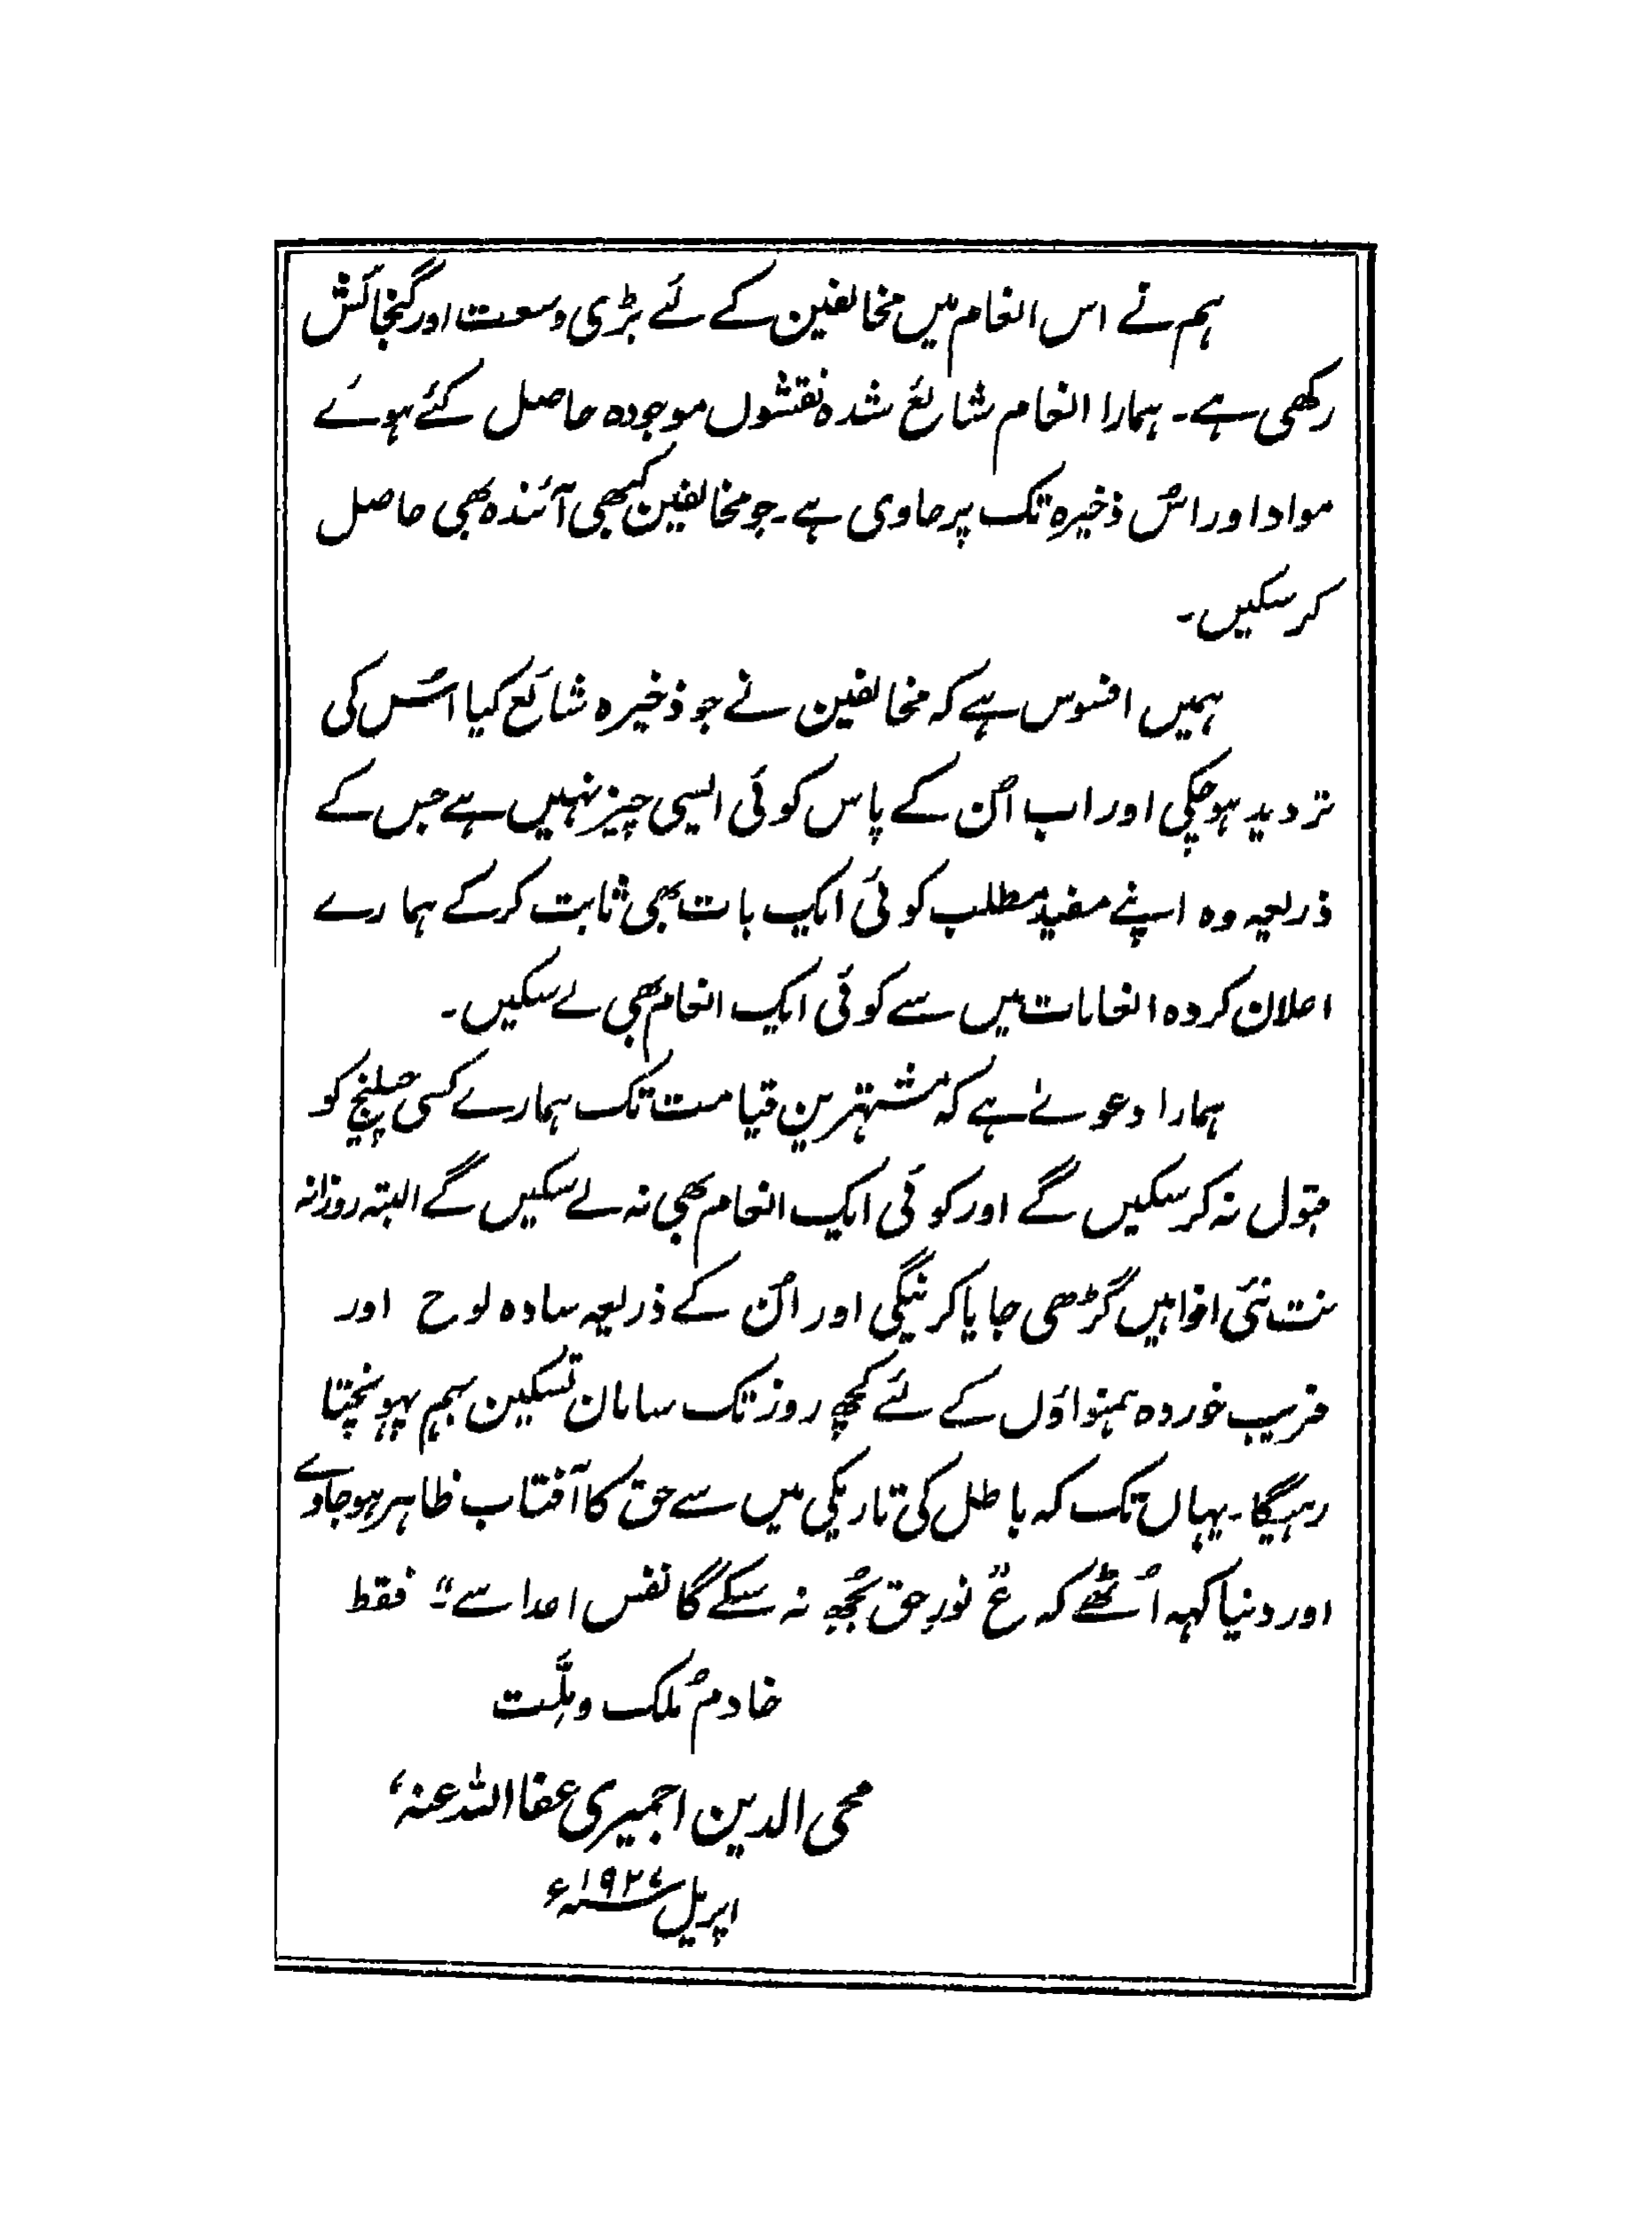 ہم نے اس انعام میں مخالفین کے لئے بڑی وسعت اور گنجائش
رکھی ہے۔ ہمارا انعام شائع شدہ نقشوں موجودہ حاصل کئے ہوئے
مواد اور اُس ذخیرہ تک پر حاوی ہے۔ جو مخالفین کبھی آئندہ بھی حاصل
کر سکیں۔
ہمیں افسوس ہے کہ مخالفین نے جو ذخیرہ شائع کیا اُس کی
تردید ہو چکی اور اب اُن کے پاس کوئی ایسی چیز نہیں ہے جس کے
ذریعہ وہ اپنے مفید مطلب کوئی ایک بات بھی ثابت کر کے ہمارے
اعلان کردہ انعامات میں سے کوئی ایک انعام بھی لے سکیں۔
ہمارا دعوےٰ ہے کہ مشتہرین قیامت تک ہمارے کسی چیلنج کو
قبول نہ کر سکیں گے اور کوئی ایک انعام بھی نہ لے سکیں گے البتہ روزانہ
نت نئی افواہیں گڑھی جایا کرینگی اور اُن کے ذریعہ سادہ لوح اور
فریب خوردہ ہمنواؤں کے لئے کچھ روز تک سامان تسکین بہم پہونچتا
رہیگا۔ یہاں تک کہ باطل کی تاریکی میں سے حق کا آفتاب ظاہر ہو جاوے
اور دنیا کہہ اُٹھے کہ ع نورِ حق بُجھ نہ سکے گا نفس اعدا سے" فقط
خادم مُلک و مِلَّت
محی الدین اجمیری عفا اللہ عنہ،
اپریل ۱۹۲۷ء